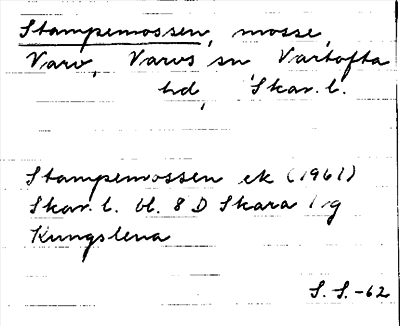 Stampemossen, mosse,
Varv, Varvs sn Vartofta
hd, Skar. l.
Stampemossen ek (1961)
Skar. l. bl. 8 D Skara 1 g
Kungslena
S. S. -62